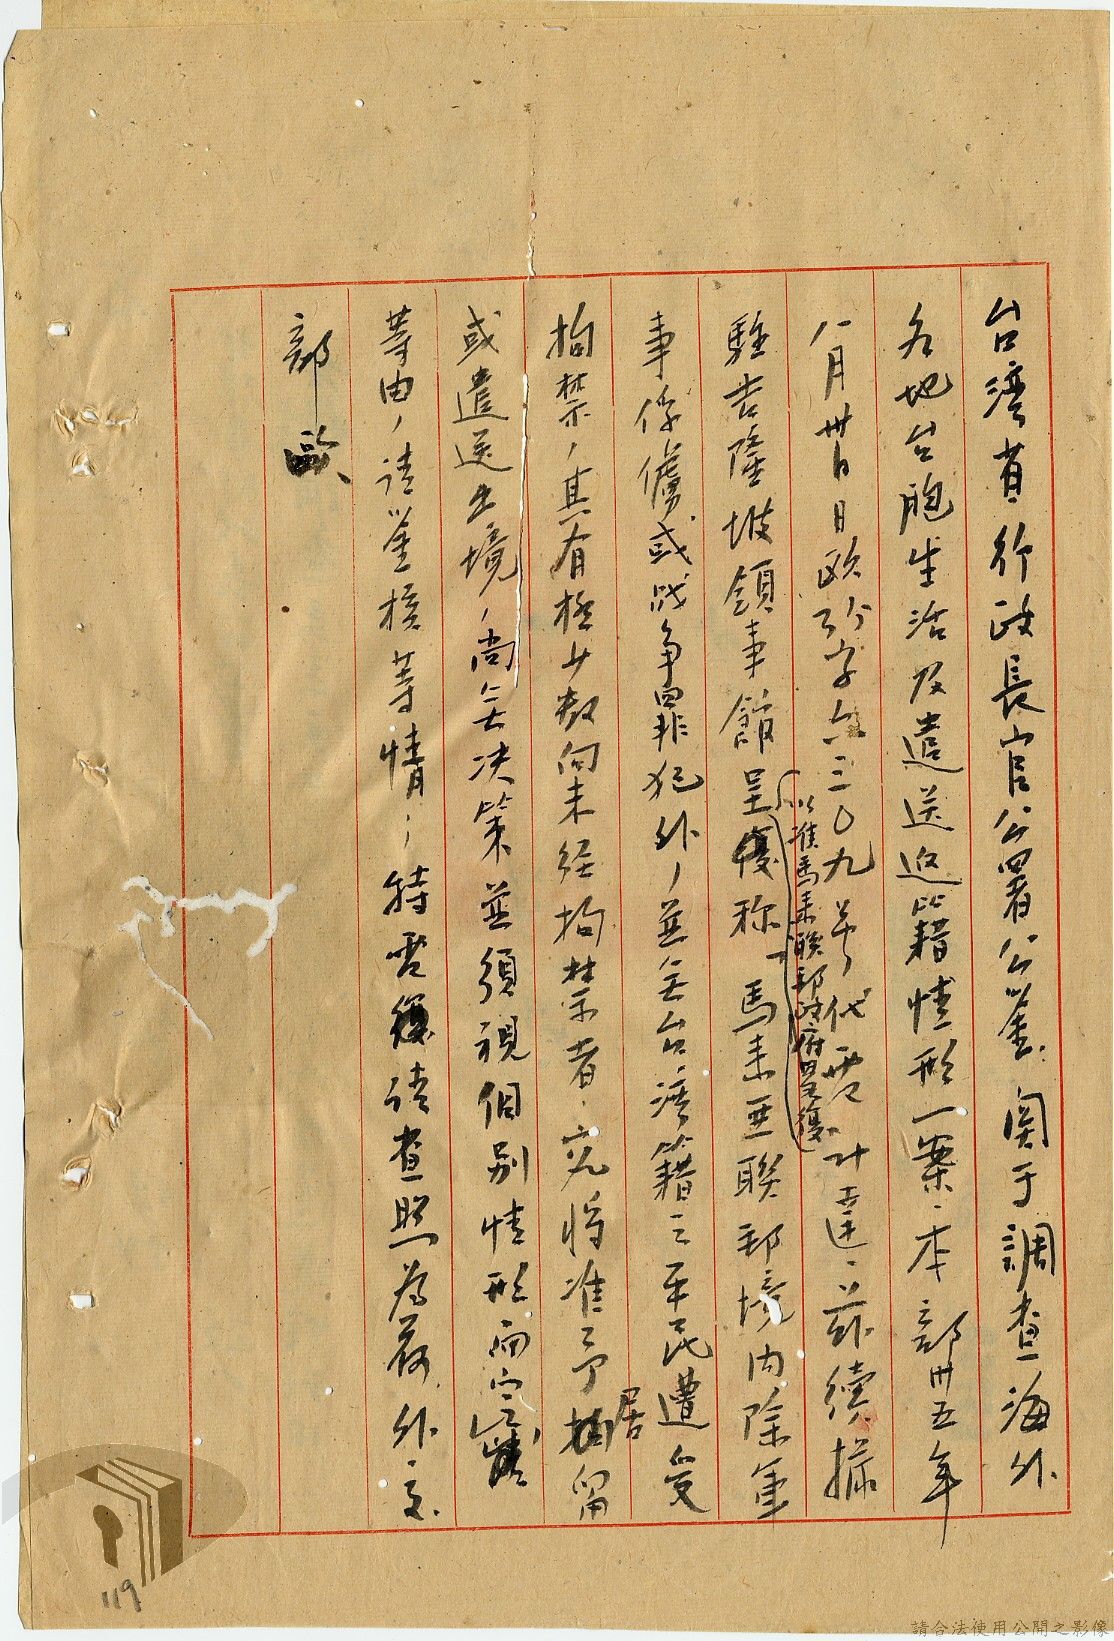 台灣省行政長官公署公鑒：關于調查海外
各地台胞生活及遣送返籍情形一案，本部卅五年
八月廿日歐35字第六三〇九號代電計達，茲續據
駐吉隆坡領事館呈復称「
以准馬來聯邦政府照復
馬來亞聯邦境内除軍
事俘虜或战争罪犯外，並无台湾籍之平民遭受
拘禁，其有極少数向未经拘禁者，究将准予居留
或遣送出境，尚无决策並須視個别情形而定
等由，请鉴核等情；特電復请查照為荷外交
部歐
119
請合法使用公開之影像